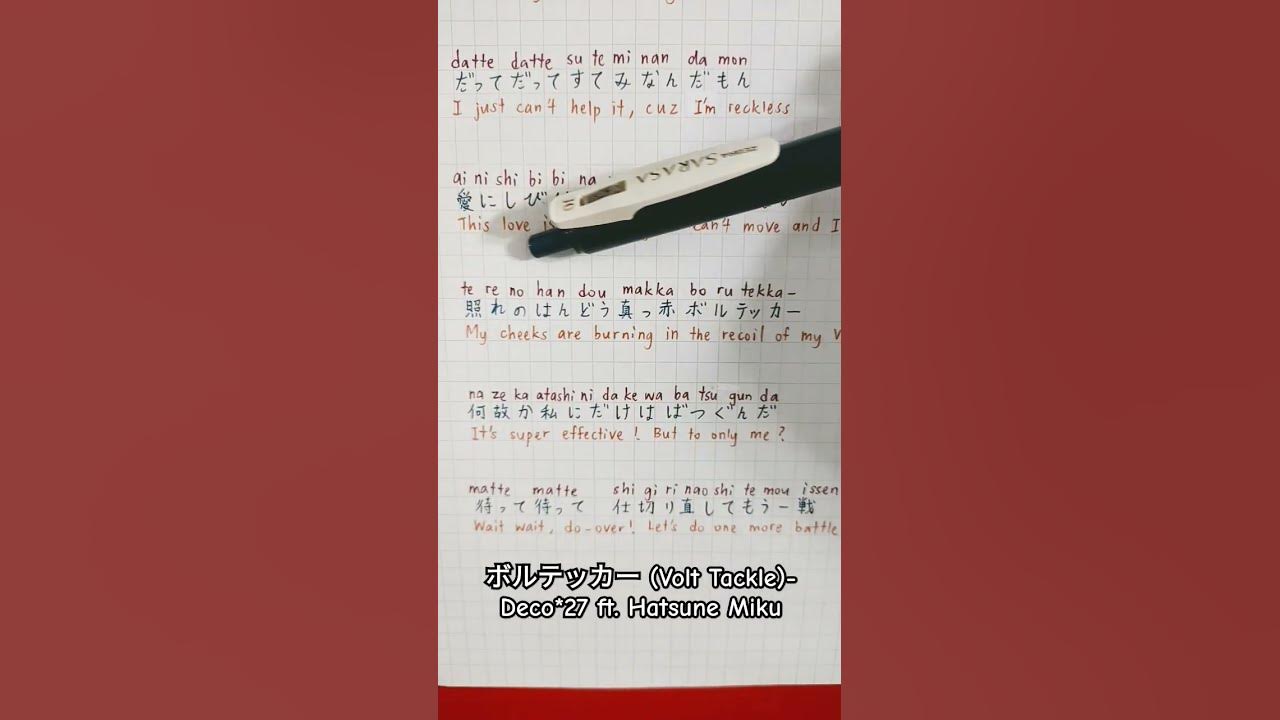 datte datte su te mi nan da mon
だってだってすてみなんだもん
I just can't help it, cuz I'm reckless
ai ni shi bi bi na
愛にしび
This love can't move and I
SARASA
te re no han dou makka bo ru tekka-
照れのはんどう真っ赤ボルテッカー
My cheeks are burning in the recoil of my V
na ze ka atashi ni da ke wa ba tsu gun da
何故か私にだけはばつぐんだ
It's super effective! But to only me?
matte matte shi gi ri nao shi te mou issen
待って待って 仕切り直してもう一戦
Wait wait, do-over! Let's do one more battle
ボルテッカー (Volt Tackle)-
Deco*27 ft. Hatsune Miku